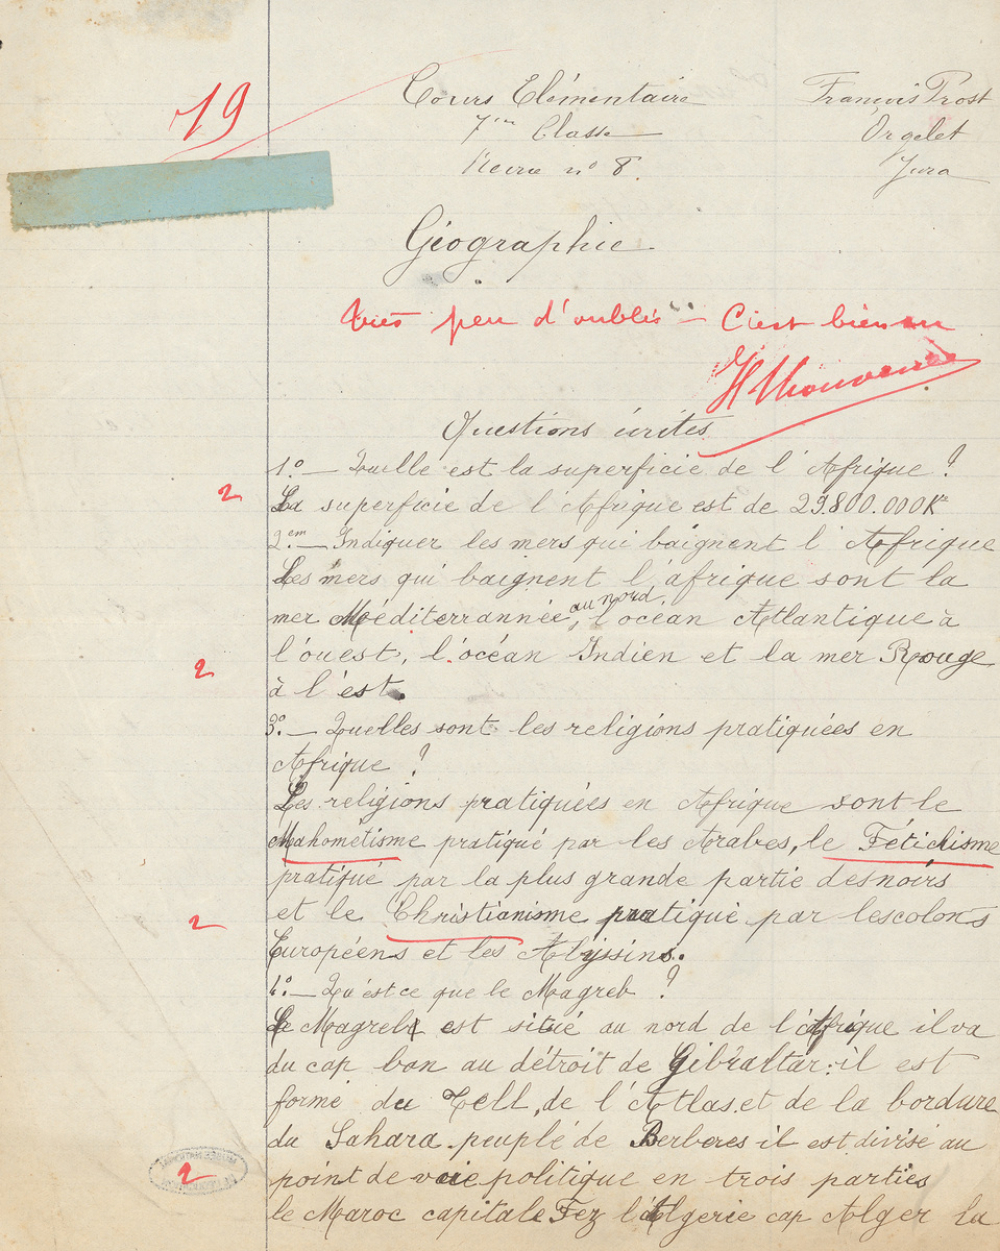 19
Cours Elémentaire
7ème Classe
Revue n° 8.
François Prost
Orgelet
Jura
Géographie
Très peu d'oublis – C'est bien
H Thouvenin
Questions écrites
1° — Quelle est la superficie de l'Afrique ?
2
La superficie de l'Afrique est de 29.800.000K
2em — Indiquer les mers qui baignent l'Afrique
Les mers qui baignent l'afrique sont la
mer Méditerrannée, au nord, l'océan Atlantique à
l'ouest, l'océan Indien et la mer Rouge
2
à l'est.
3° — Quelles sont les religions pratiquées en
Afrique ?
Les religions pratiquées en Afrique sont le
Mahométisme pratiqué par les Arabes, le Fétichisme
pratiqué par la plus grande partie des noirs
et le Christianisme pratiqué par les colons
2
Européens et les Abyssins.
4° — Qu'est ce que le Magreb ?
Le Magreb est situé au nord de l'Afrique il va
du cap bon au détroit de Gibraltar: il est
formé du Tell, de l'Atlas et de la bordure
du Sahara peuplé de Berberes il est divisé au
2
point de vue politique en trois parties
le Maroc capitale Fez l'Algerie cap Alger la